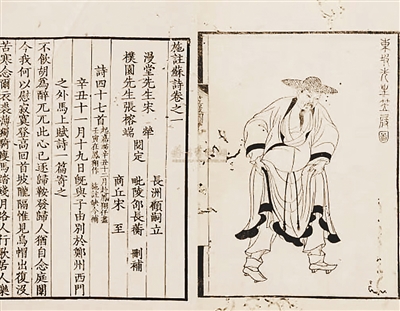 東坡先生笠屐圖
施註蘇詩卷之一
漫堂先生宋犖
樸園先生張榕端
閱定
長洲顧嗣立
毗陵邵長蘅
刪補
商丘宋至
詩四十七首
辛丑十一月十九日既與子由別於鄭州西門
之外馬上賦詩一篇寄之
不飲胡為醉兀兀此心已逐歸鞍發歸人猶自念庭闈
今我何以慰寂寞登高回首坡隴隔惟見烏帽出復沒
苦寒念爾衣裘薄獨騎瘦馬踏殘月路人行歌居人樂